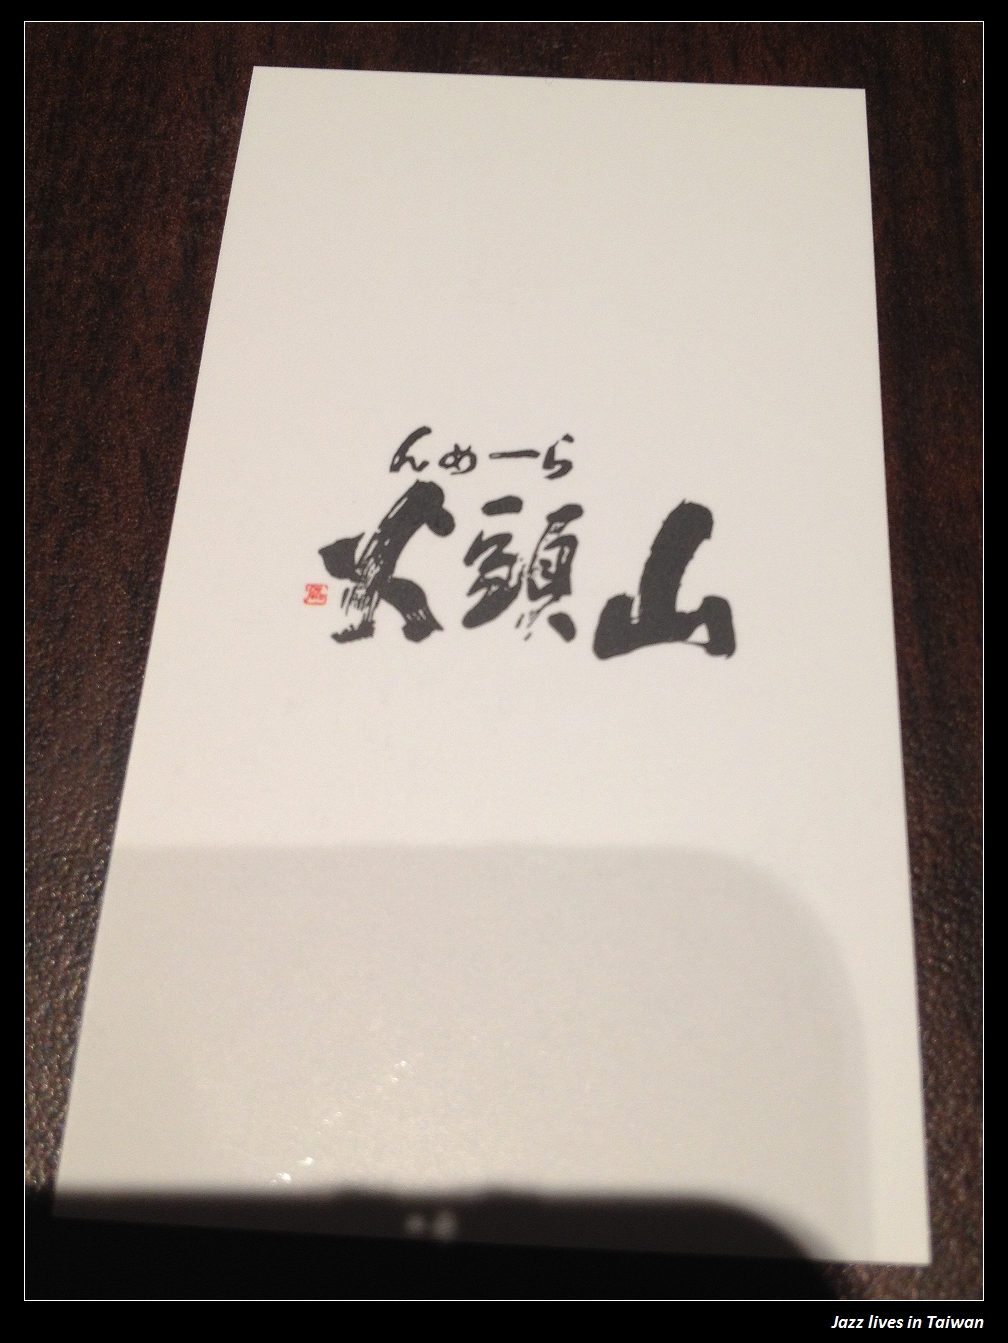 らーめん
山頭火
Jazz lives in Taiwan